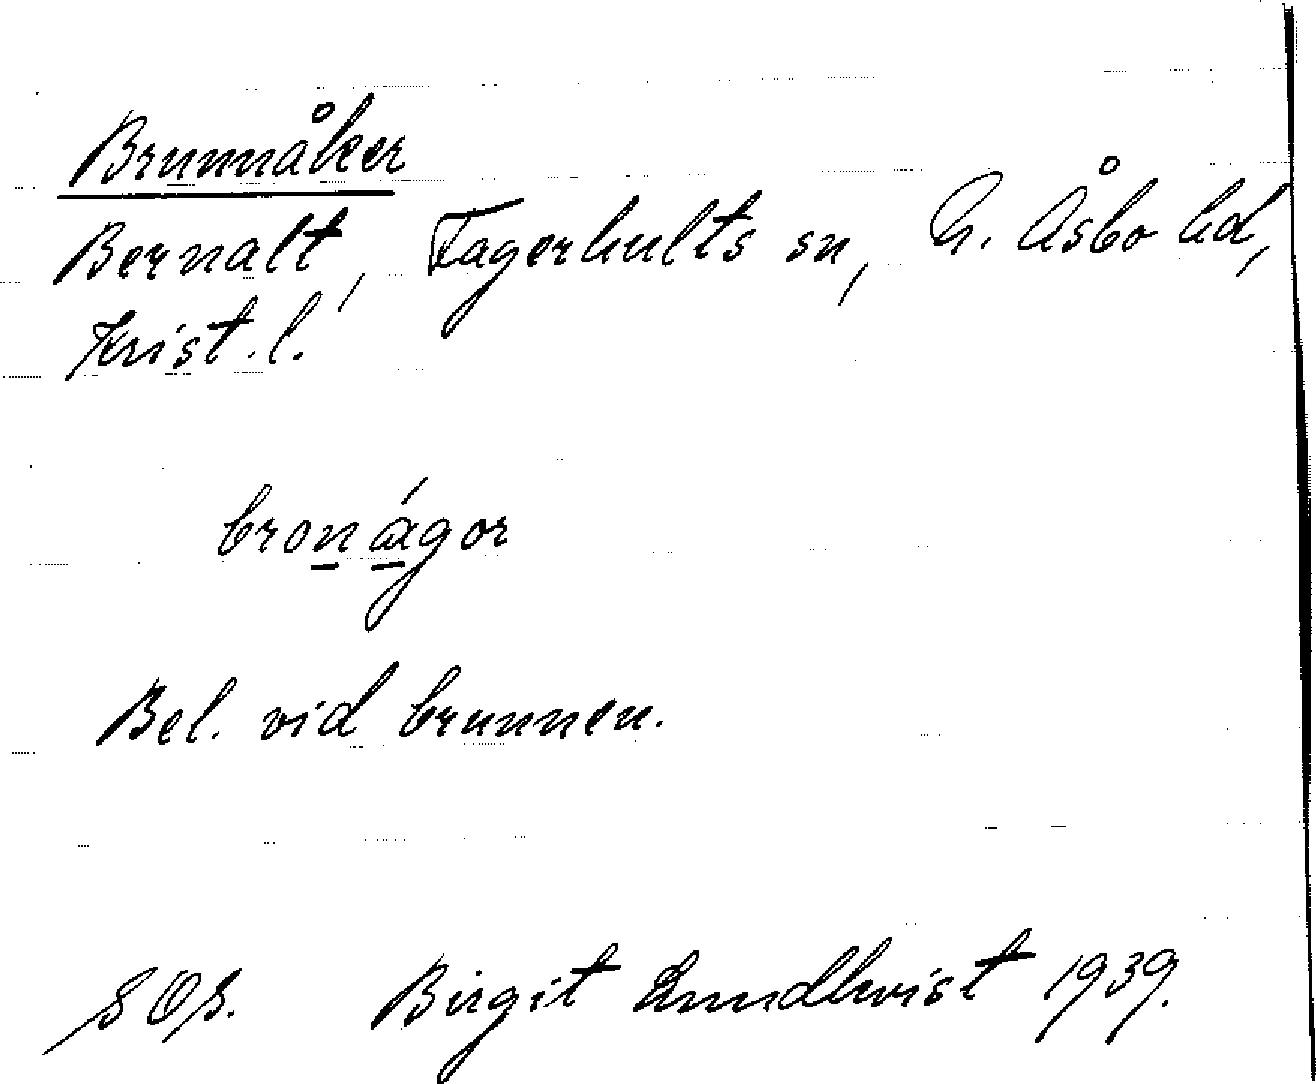 Brunnåker
Bernalt, Fagerhults sn, N. Åsbo hd,
Krist. l.
bronágor
Bel. vid brunnen.
SOS. Birgit Lundkvist 1939.